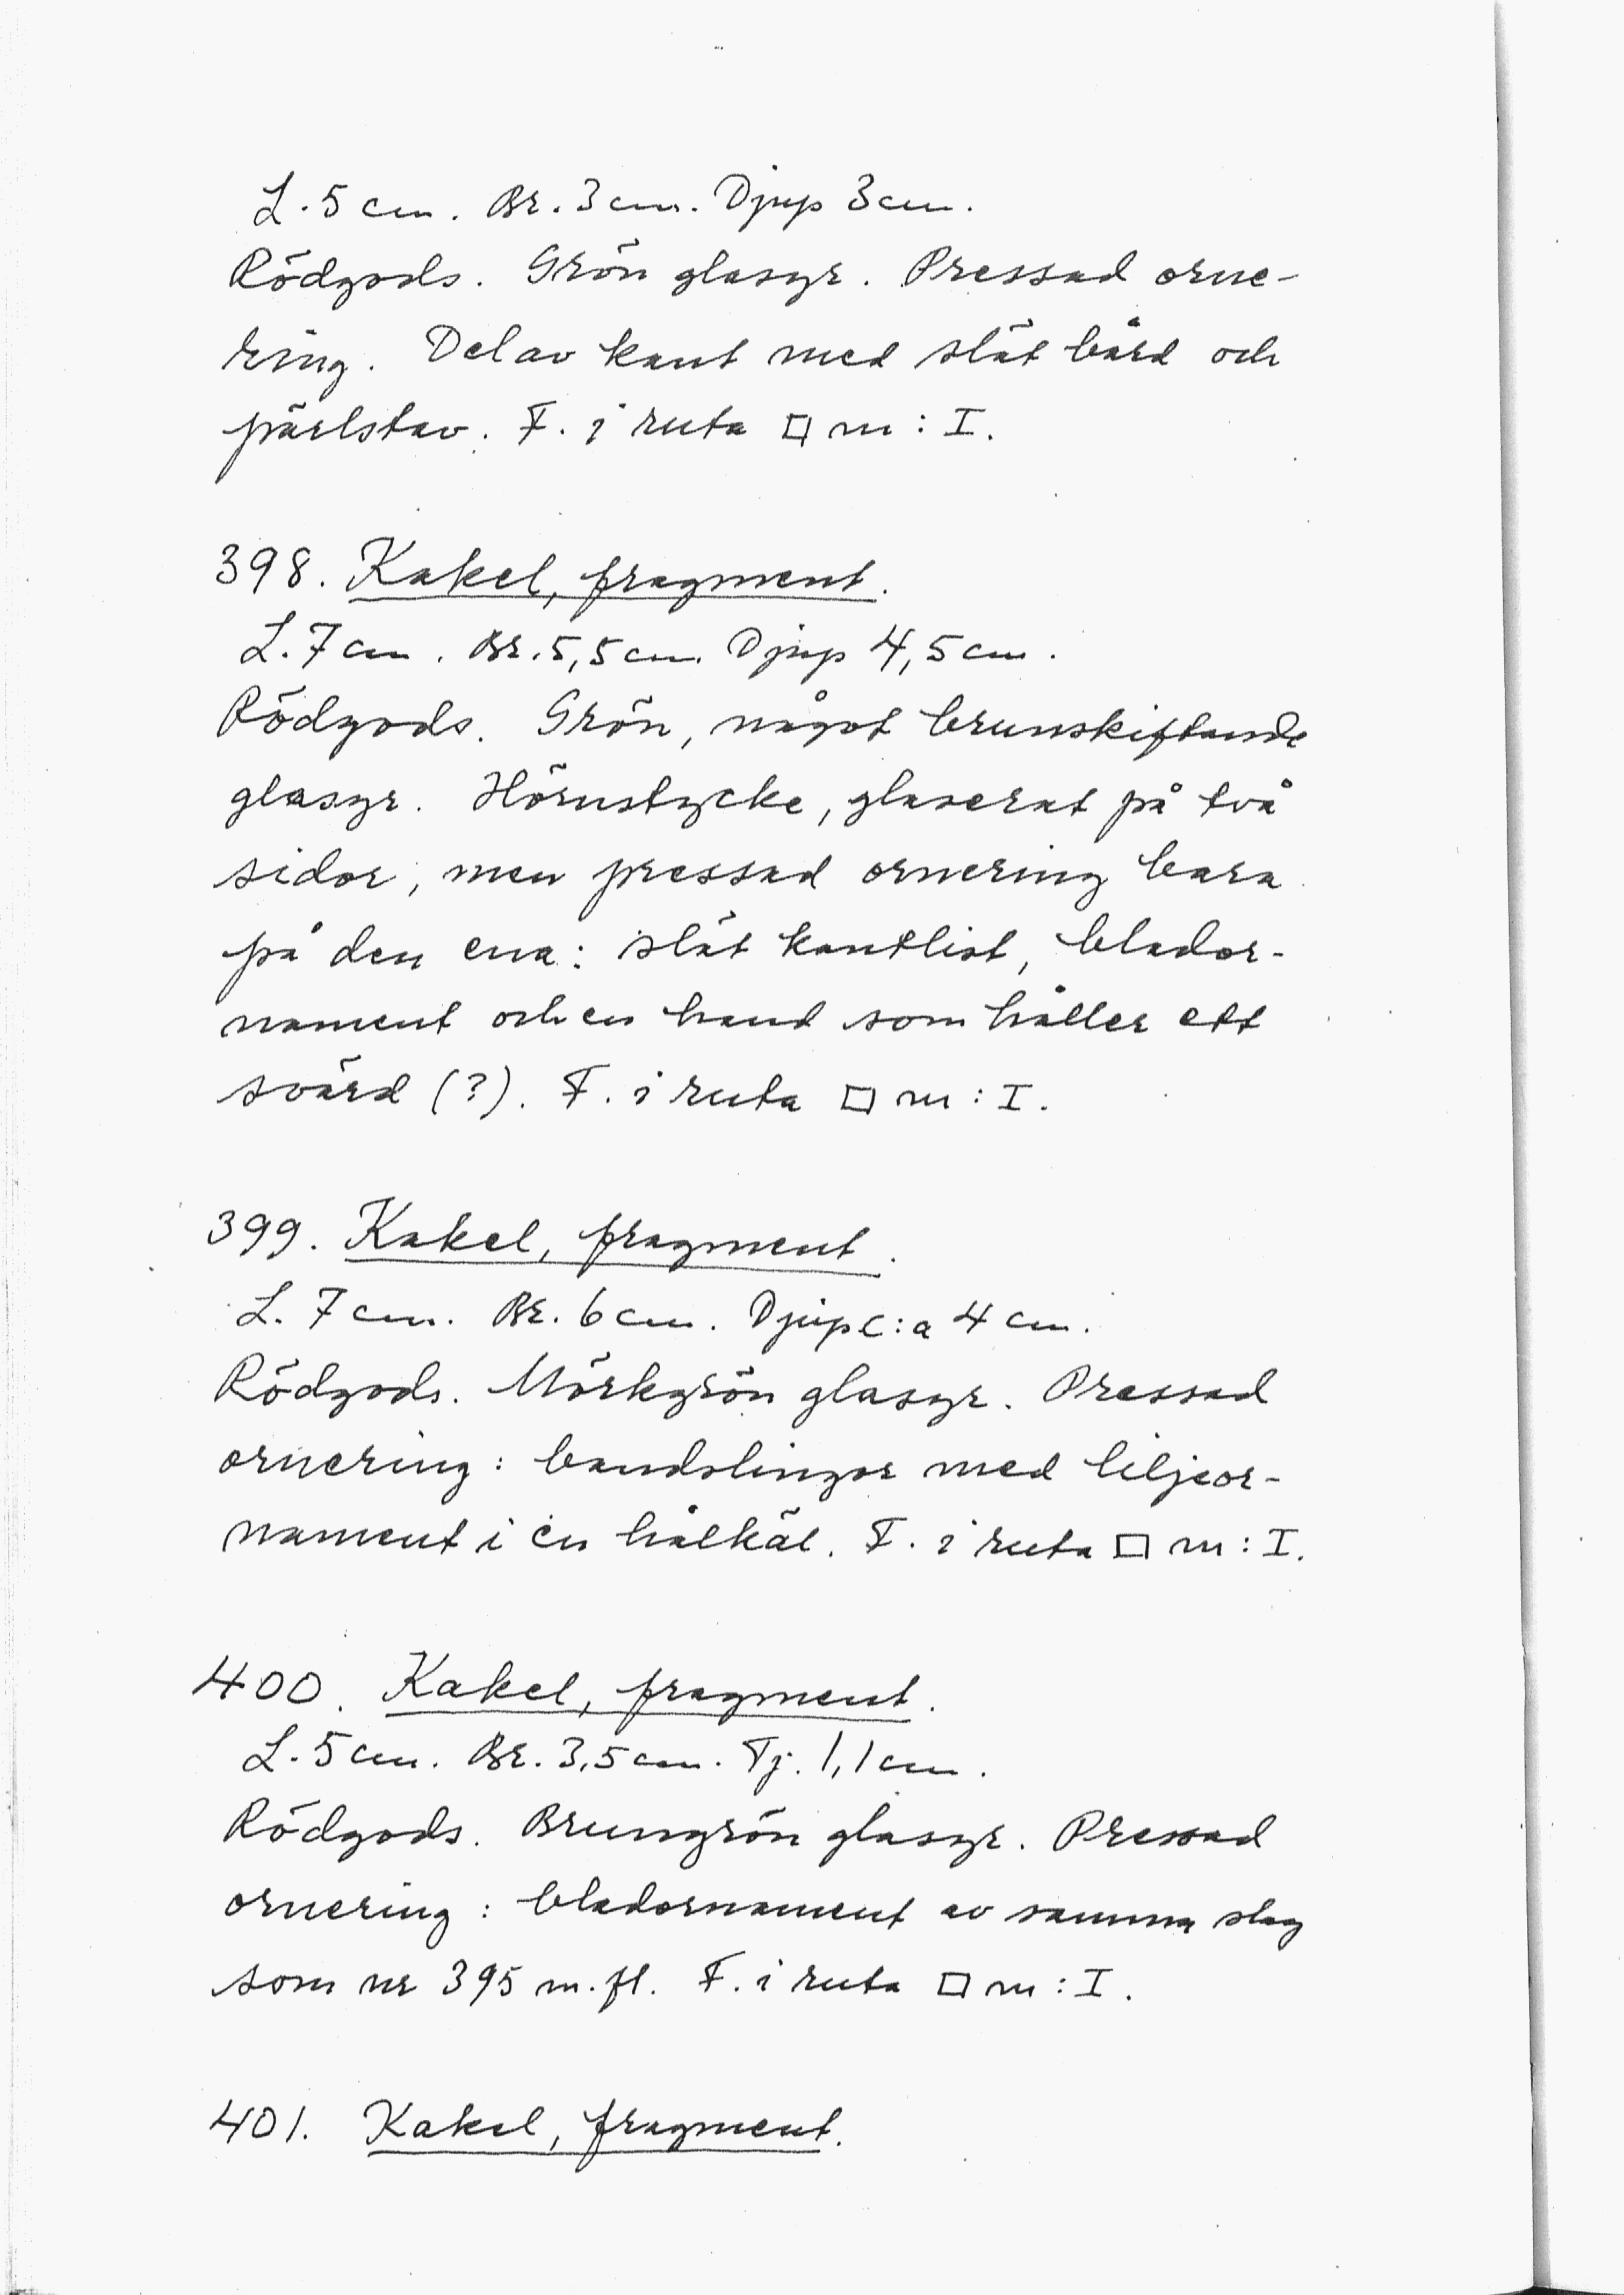 L. 5 cm. Br. 3 cm. Djup 3 cm.
Rödgods. Grön glasyr. Pressad orne-
ring. Del av kant med slät bård och
pärlstav. F. i ruta □ m : I.
398. Kakel, fragment.
L. 7 cm. Br. 5,5 cm. Djup 4,5 cm.
Rödgods. Grön, något brunskiftande
glasyr. Hörnstycke, glaserat på två
sidor, men pressad ornering bara
på den ena: slät kantlist, blador-
nament och en hand som håller ett
svärd (?). F. i ruta □ m : I.
399. Kakel, fragment.
L. 7 cm. Br. 6 cm. Djup c:a 4 cm.
Rödgods. Mörkgrön glasyr. Pressad
ornering: bandslingor med liljeor-
nament i en hålkäl. F. i ruta □ m : I.
400. Kakel, fragment.
L. 5 cm. Br. 3,5 cm. Tj. 1,1 cm.
Rödgods. Brungrön glasyr. Pressad
ornering: bladornament av samma slag
som nr 395 m. fl. F. i ruta □ m : I.
401. Kakel, fragment.